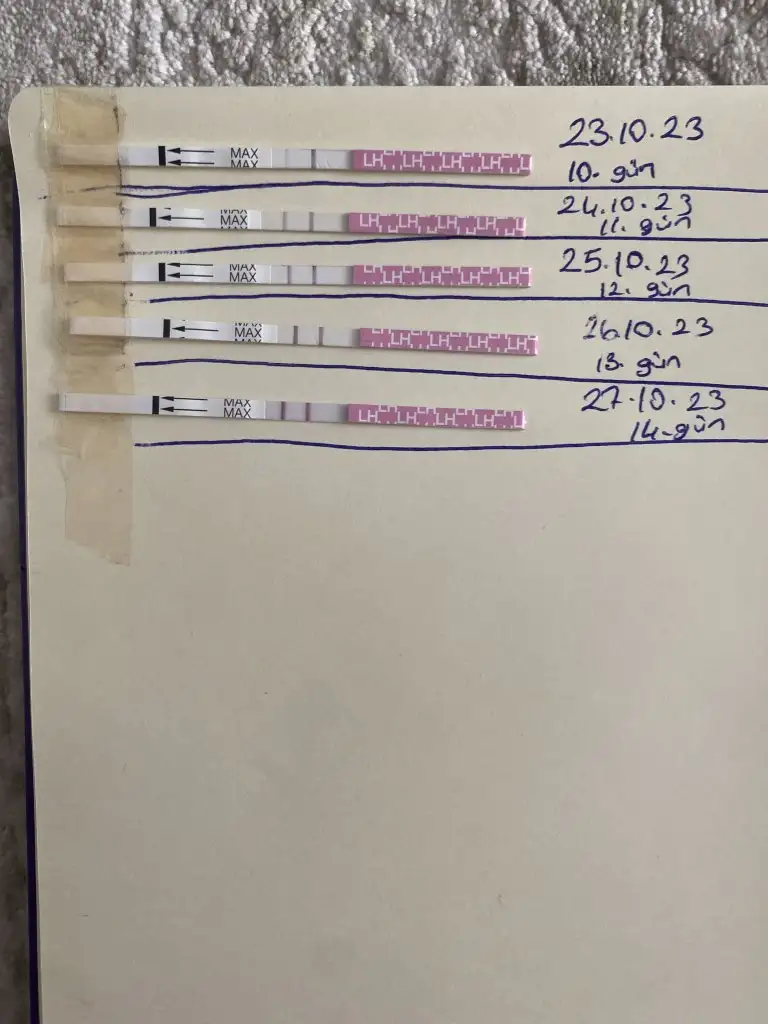 MAX
MAX
LH LH LH LH L
23.10.23
10. gün
MAX
MAX
LH LH LH LH L
24.10.23
11. gün
MAX
MAX
LH LH LH LH L
25.10.23
12. gün
MAX
MAX
LH LH LH LH LH
26.10.23
13. gün
MAX
MAX
LH LH LH LH L
27.10.23
14. gün